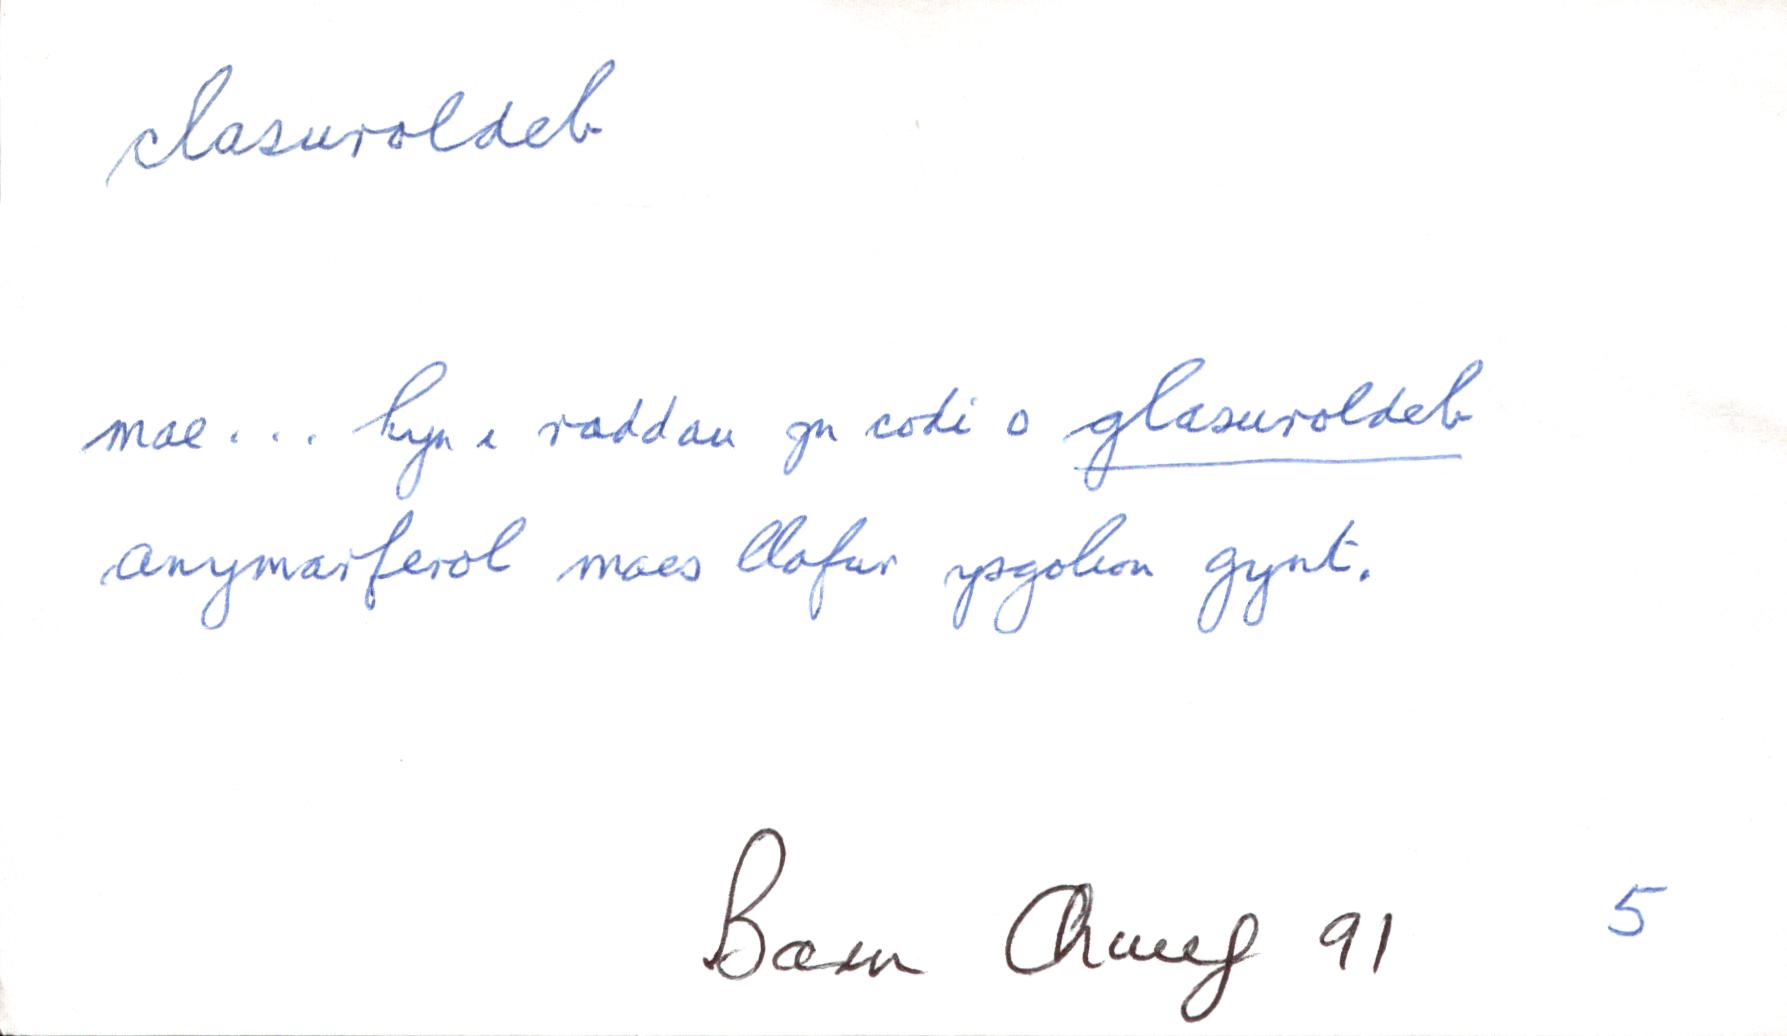 clasuroldeb
mae... hyn i raddau yn codi o glasuroldeb
anymarferol maes llafur ysgolion gynt.
Barn Chwef 91 5